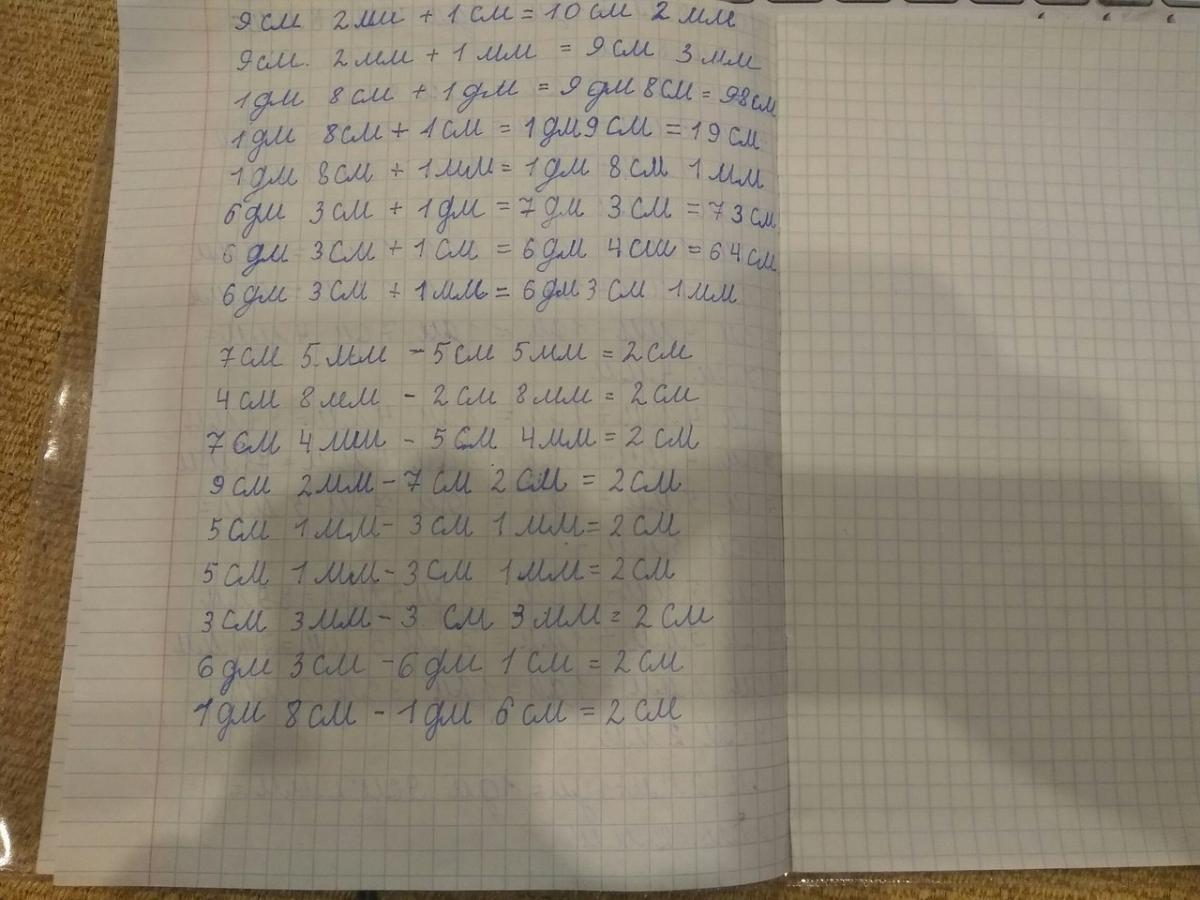 9см 2мм + 1см = 10см 2мм
9см. 2мм + 1мм = 9см 3мм
1дм 8см + 1дм = 9дм 8см = 98см
1дм 8см + 1см = 1дм 9см = 19см
1дм 8см + 1мм = 1дм 8см 1мм
6дм 3см + 1дм = 7дм 3см = 73см
6дм 3см + 1см = 6дм 4см = 64см
6дм 3см + 1мм = 6дм 3см 1мм
7см 5мм - 5см 5мм = 2см
4см 8мм - 2см 8мм = 2см
7см 4мм - 5см 4мм = 2см
9см 2мм - 7см 2см = 2см
5см 1мм - 3см 1мм = 2см
5см 1мм - 3см 1мм = 2см
3см 3мм - 3см 3мм = 2см
6дм 3см - 6дм 1см = 2см
1дм 8см - 1дм 6см = 2см